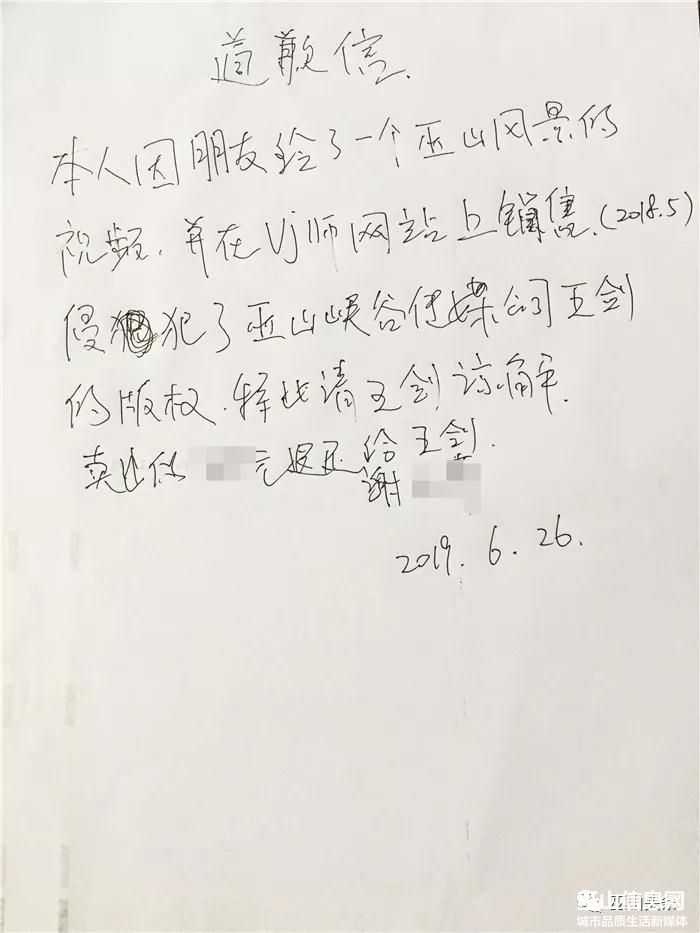 道歉信.
本人因朋友给了一个巫山风景的
视频.并在Vj师网站上销售.(2018.5)
侵犯了巫山峡谷传媒公司王剑
的版权.特此请王剑谅解.
卖出价 元退还给王剑.
谢
2019.6.26.
巫山信息网
城市品质生活新媒体